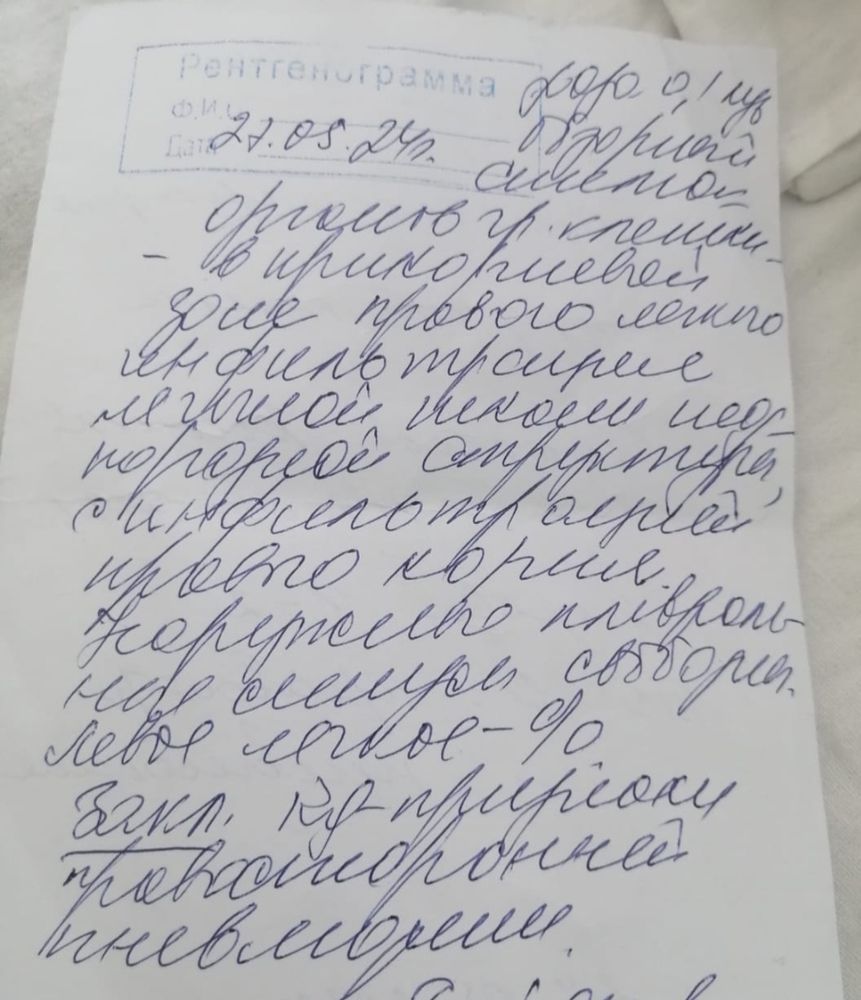 Рентгенограмма
Ф.И.О.
Дата 27.05.24г.
доза 0,1 мзв
Обзорный
снимок
органов гр. клетки
- в прикорневой
зоне правого легкого
инфильтрация
легочной ткани неод-
нородной структуры,
с инфильтрацией
правого корня.
Наружные плевраль-
ные синусы свободны.
Левое легкое - %
Закл. Rg-признаки
правосторонней
пневмонии.